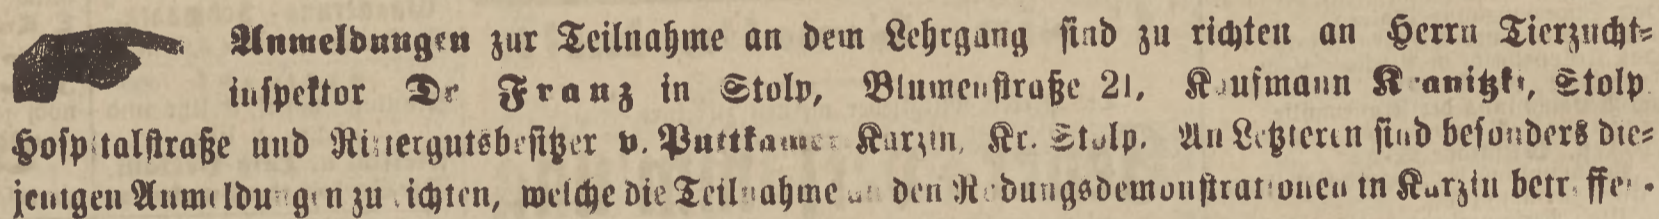 Anmeldungen zur Teilnahme an dem Lehrgang sind zu richten an Herrn Tierzucht-
inspektor Dr Franz in Stolp, Blumenstraße 21, Kaufmann Kranitzki, Stolp
Hospitalstraße und Rittergutsbesitzer v. Puttkamer Karzin, Kr. Stolp. An Letzteren sind besonders die-
jenigen Anmeldungen zu richten, welche die Teilnahme an den Rodungsdemonstrationen in Karzin betreffen.